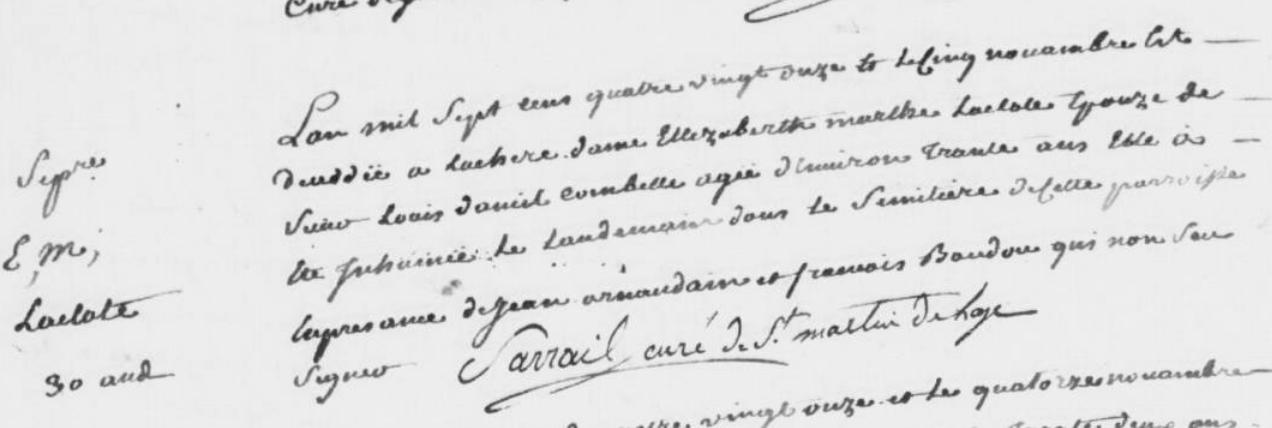 Curé
Lan mil Sept cens quatre vingt onze et le Cinq nouambre Est
Sepre
deceddée a Lachere dame Ellezaberth marthe Laclote Epouze de
Sieur Louis daniel Combelle agée d'Environ Trante ans Elle à
E, m,
Eté Inhumée Le Landemain dans le Simitière de Cette parroisse
Laclote
Enpresance de Jean arnaudain et francois Baudou qui non Seu
30 and
Signer Sarrail curé de St martin de Laye
vingt onze et le quatorze nouambre
deux ans